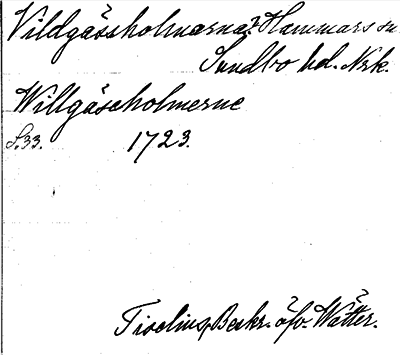 Vildgåsholmarna? Hammars sn
Sundbo hd. Nrk.
Willgåsholmerne
S. 33. 1723.
Tiselius, Beskr. öfv. Wätter.